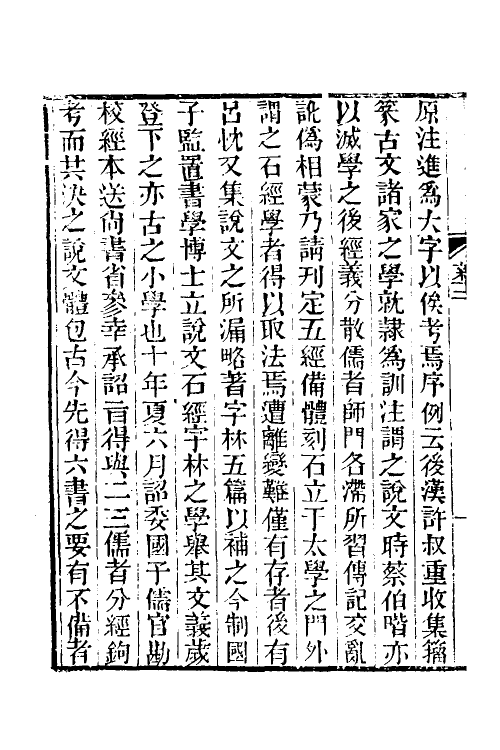 原注進爲大字以俟考焉序例云後漢許叔重收集籀
篆古文諸家之學就隷爲訓注謂之說文時蔡伯喈亦
以滅學之後經義分散儒者師門各滯所習傳記交亂
訛僞相蒙乃請刊定五經備體刻石立于太學之門外
謂之石經學者得以取法焉遭離變難僅有存者後有
呂忱又集說文之所漏略著字林五篇以補之今制國
子監置書學博士立說文石經字林之學舉其文義歲
登下之亦古之小學也十年夏六月詔委國子儒官勘
校經本送尚書省參幸承詔旨得與二三儒者分經鉤
考而共決之說文體包古今先得六書之要有不備者